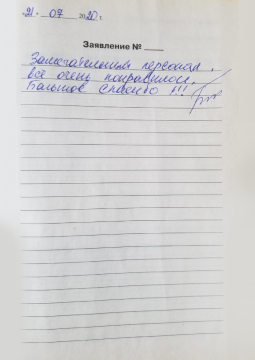 21. 07 2020 г.
Заявление № ____
Замечательный персонал.
всё очень понравилось.
Большое спасибо !!!